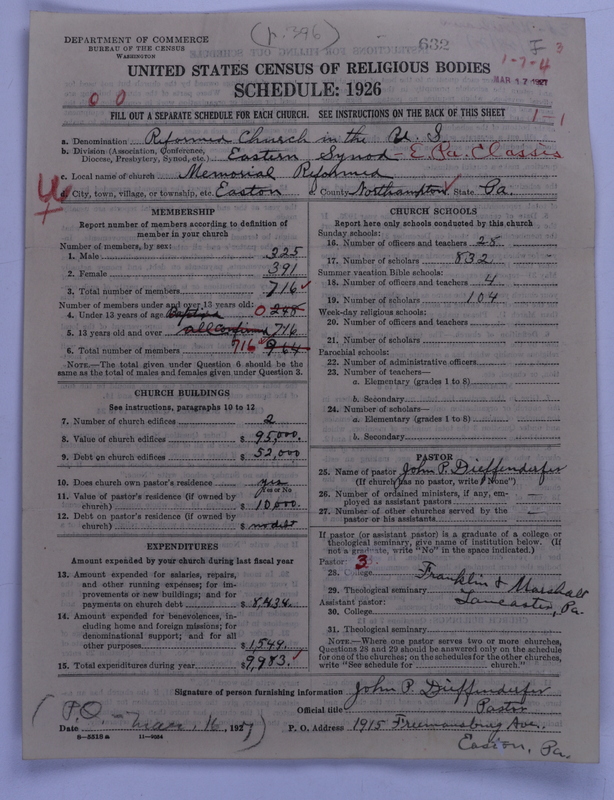 (p. 396)
DEPARTMENT OF COMMERCE
BUREAU OF THE CENSUS
WASHINGTON
632
F 3
1-7-4
MAR 17 1927
UNITED STATES CENSUS OF RELIGIOUS BODIES
SCHEDULE: 1926
0 0
FILL OUT A SEPARATE SCHEDULE FOR EACH CHURCH. SEE INSTRUCTIONS ON THE BACK OF THIS SHEET
1-1
a. Denomination Reformed Church in the U. S
b. Division (Association, Conference, Diocese, Presbytery, Synod, etc.) Eastern Synod - E. Pa. Classis
c. Local name of church Memorial Reformed
d. City, town, village, or township, etc. Easton e. County Northampton State Pa.
MEMBERSHIP
Report number of members according to definition of
member in your church
Number of members, by sex:
1. Male 325
2. Female 391
3. Total number of members 716
Number of members under and over 13 years old:
4. Under 13 years of age Baptized 0 248
5. 13 years old and over all confirmed 716
6. Total number of members 716 964
NOTE.—The total given under Question 6 should be
the same as the total of males and females given under Question 3.
CHURCH BUILDINGS
See instructions, paragraphs 10 to 12
7. Number of church edifices 2
8. Value of church edifices $ 95,000.
9. Debt on church edifices $ 52,000
10. Does church own pastor's residence? yes
Yes or No
11. Value of pastor's residence (if owned by
church) $ 10,000.
12. Debt on pastor's residence (if owned by
church) $ no debt
EXPENDITURES
Amount expended by your church during last fiscal year
13. Amount expended for salaries, repairs,
and other running expenses; for im-
provements or new buildings; and for
payments on church debt $ 8,434.
14. Amount expended for benevolences, in-
cluding home and foreign missions; for
denominational support; and for all
other purposes $ 1,549.
15. Total expenditures during year $ 9,983.
CHURCH SCHOOLS
Report here only schools conducted by this church
Sunday schools:
16. Number of officers and teachers 28
17. Number of scholars 832
Summer vacation Bible schools:
18. Number of officers and teachers 4
19. Number of scholars 104
Week-day religious schools:
20. Number of officers and teachers
21. Number of scholars
Parochial schools:
22. Number of administrative officers
23. Number of teachers—
a. Elementary (grades 1 to 8)
b. Secondary
24. Number of scholars—
a. Elementary (grades 1 to 8)
b. Secondary
PASTOR
25. Name of pastor John P. Dieffenderfer
(If church has no pastor, write "None")
26. Number of ordained ministers, if any, em-
ployed as assistant pastors
27. Number of other churches served by the
pastor or his assistants
If pastor (or assistant pastor) is a graduate of a college or
theological seminary, give name of institution below. (If
not a graduate, write "No" in the space indicated.)
Pastor: 3
28. College Franklin & Marshall
29. Theological seminary Lancaster, Pa.
Assistant pastor:
30. College
31. Theological seminary
NOTE.—Where one pastor serves two or more churches,
Questions 28 and 29 should be answered only on the schedule
for one of the churches; on the schedules for the other churches,
write "See schedule for church."
Signature of person furnishing information John P. Dieffenderfer
Official title Pastor
(P.O. - Date Mar. 16, 1927) P. O. Address 1915 Freemansburg Ave.
8-5518 a 11-9264
Easton, Pa.